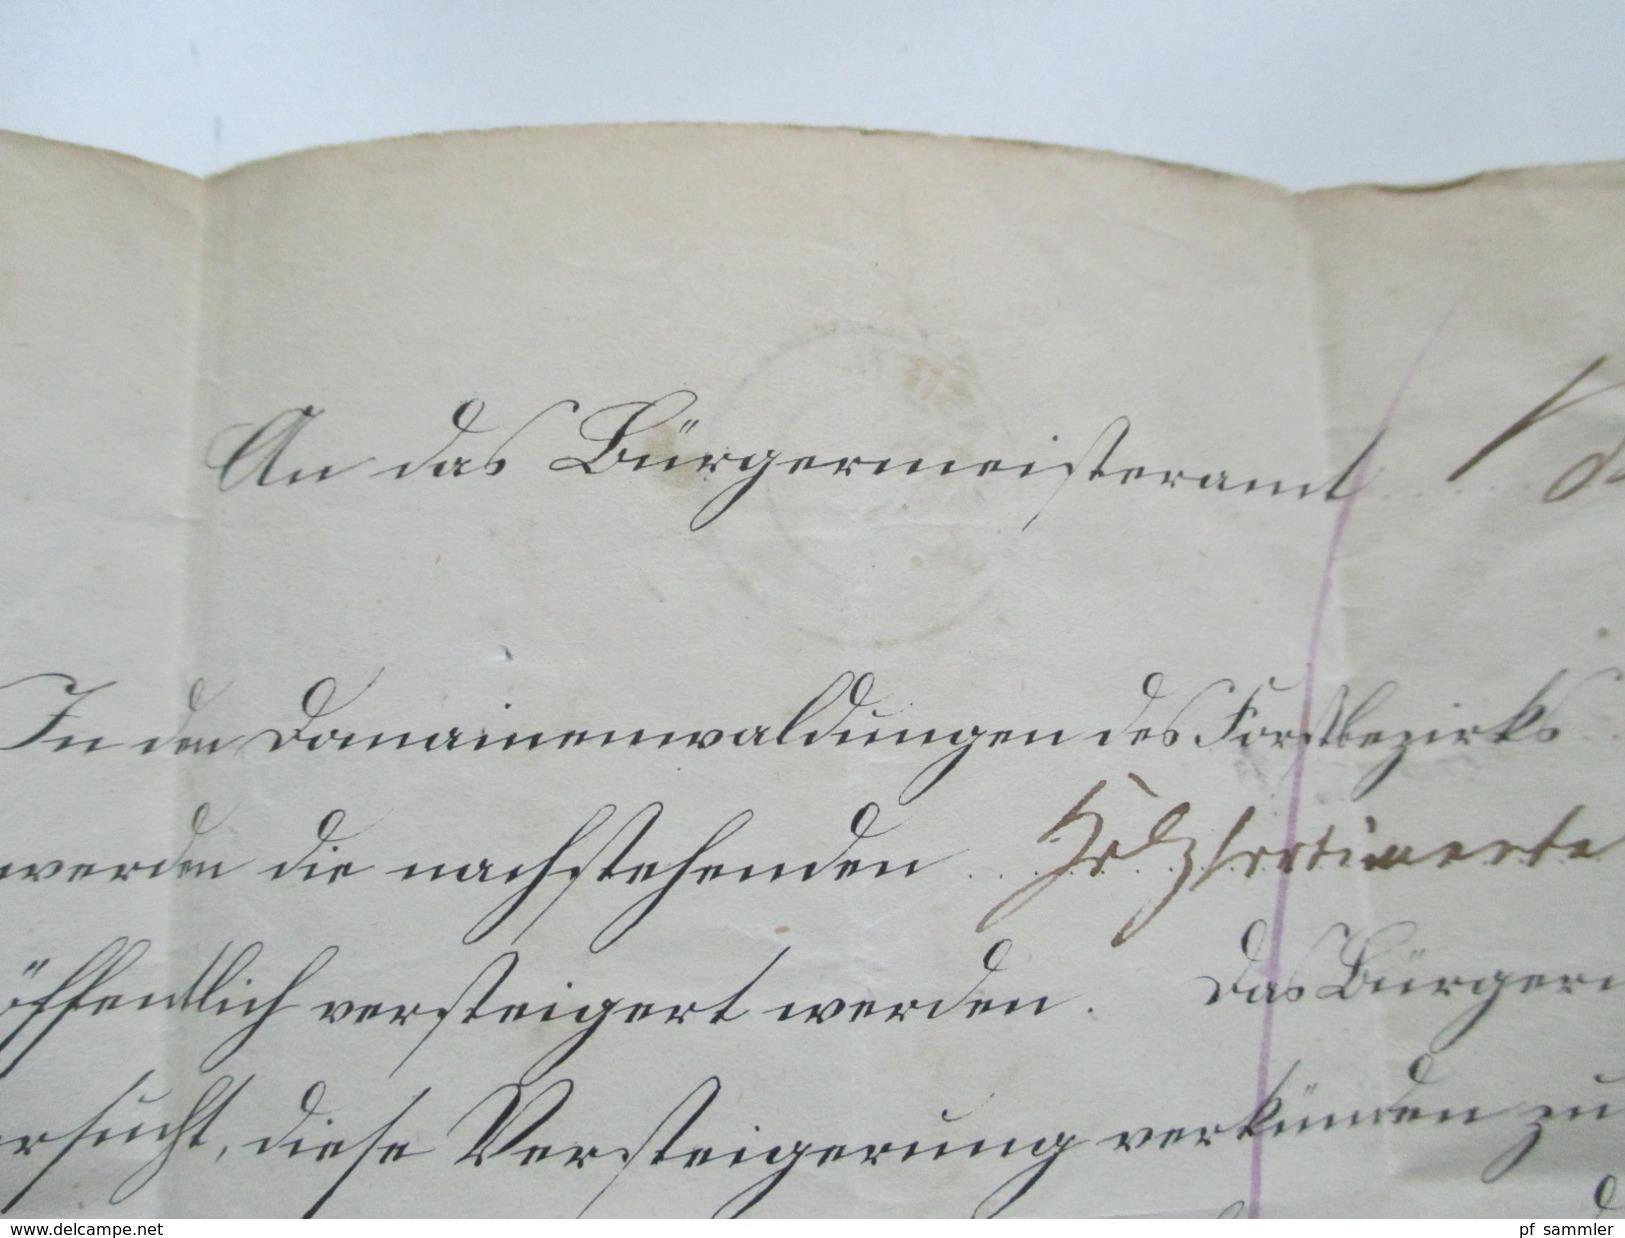 An das Bürgermeisteramt
In den Domainenwaldungen des Forstbezirks
werden die nachstehenden Holzsortimente
öffentlich versteigert werden. Das Bürgerm
ersucht, diese Versteigerung verkünden zu
www.delcampe.net
pf_sammler